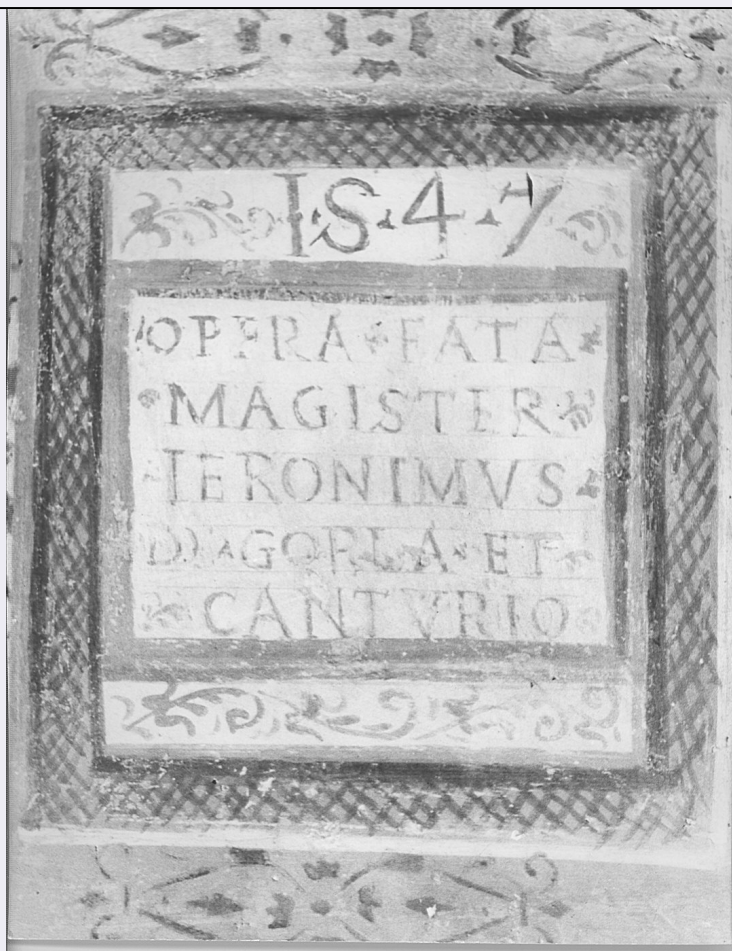 1·5·4·7
OPERA FATA
MAGISTER
IERONIMVS
DE GORLA ET
CANTVRIO